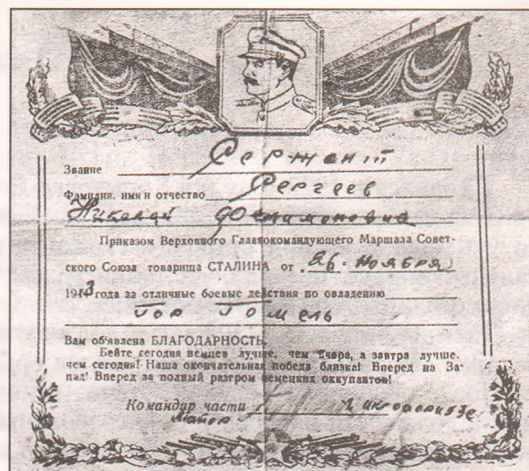 Звание Сержант
Фамилия, имя и отчество Сергеев
Николай Филимонович
Приказом Верховного Главнокомандующего Маршала Совет-
ского Союза товарища СТАЛИНА от 26. Ноября
1943 года за отличные боевые действия по овладению
гор Гомель
Вам об'явлена БЛАГОДАРНОСТЬ.
Бейте сегодня немцев лучше, чем вчера, а завтра лучше,
чем сегодня! Наша окончательная победа близка! Вперед на За-
пад! Вперед за полный разгром немецких оккупантов!
Командир части
Майор